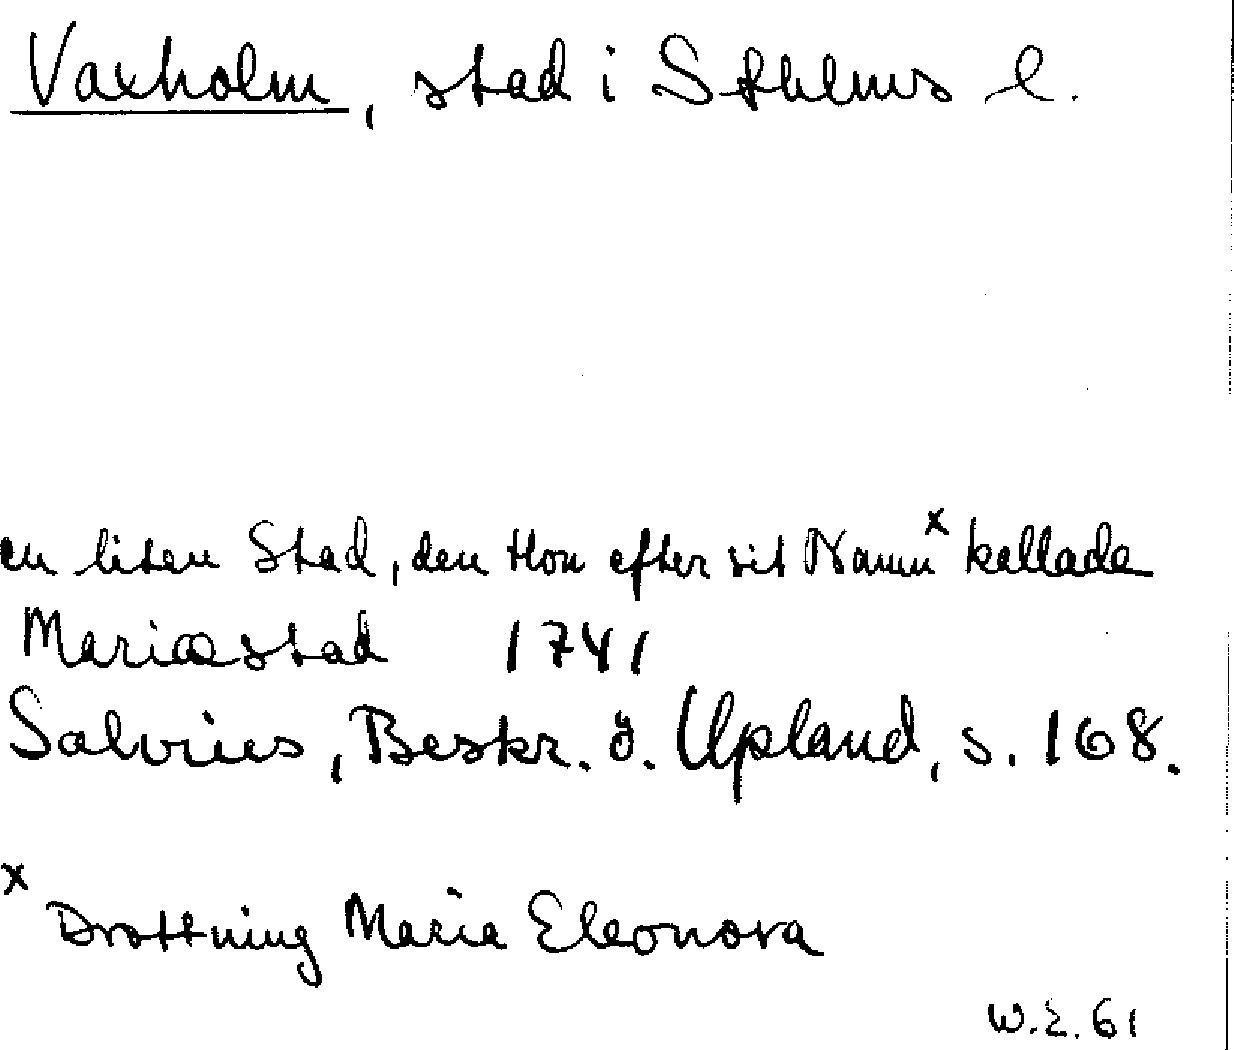 Vaxholm, stad i Sthlms l.
en liten Stad, den Hon efter sit Namn x kallade
Mariæstad 1741
Salvius, Beskr. ö. Upland, s. 168.
x Drottning Maria Eleonora
W.E. 61